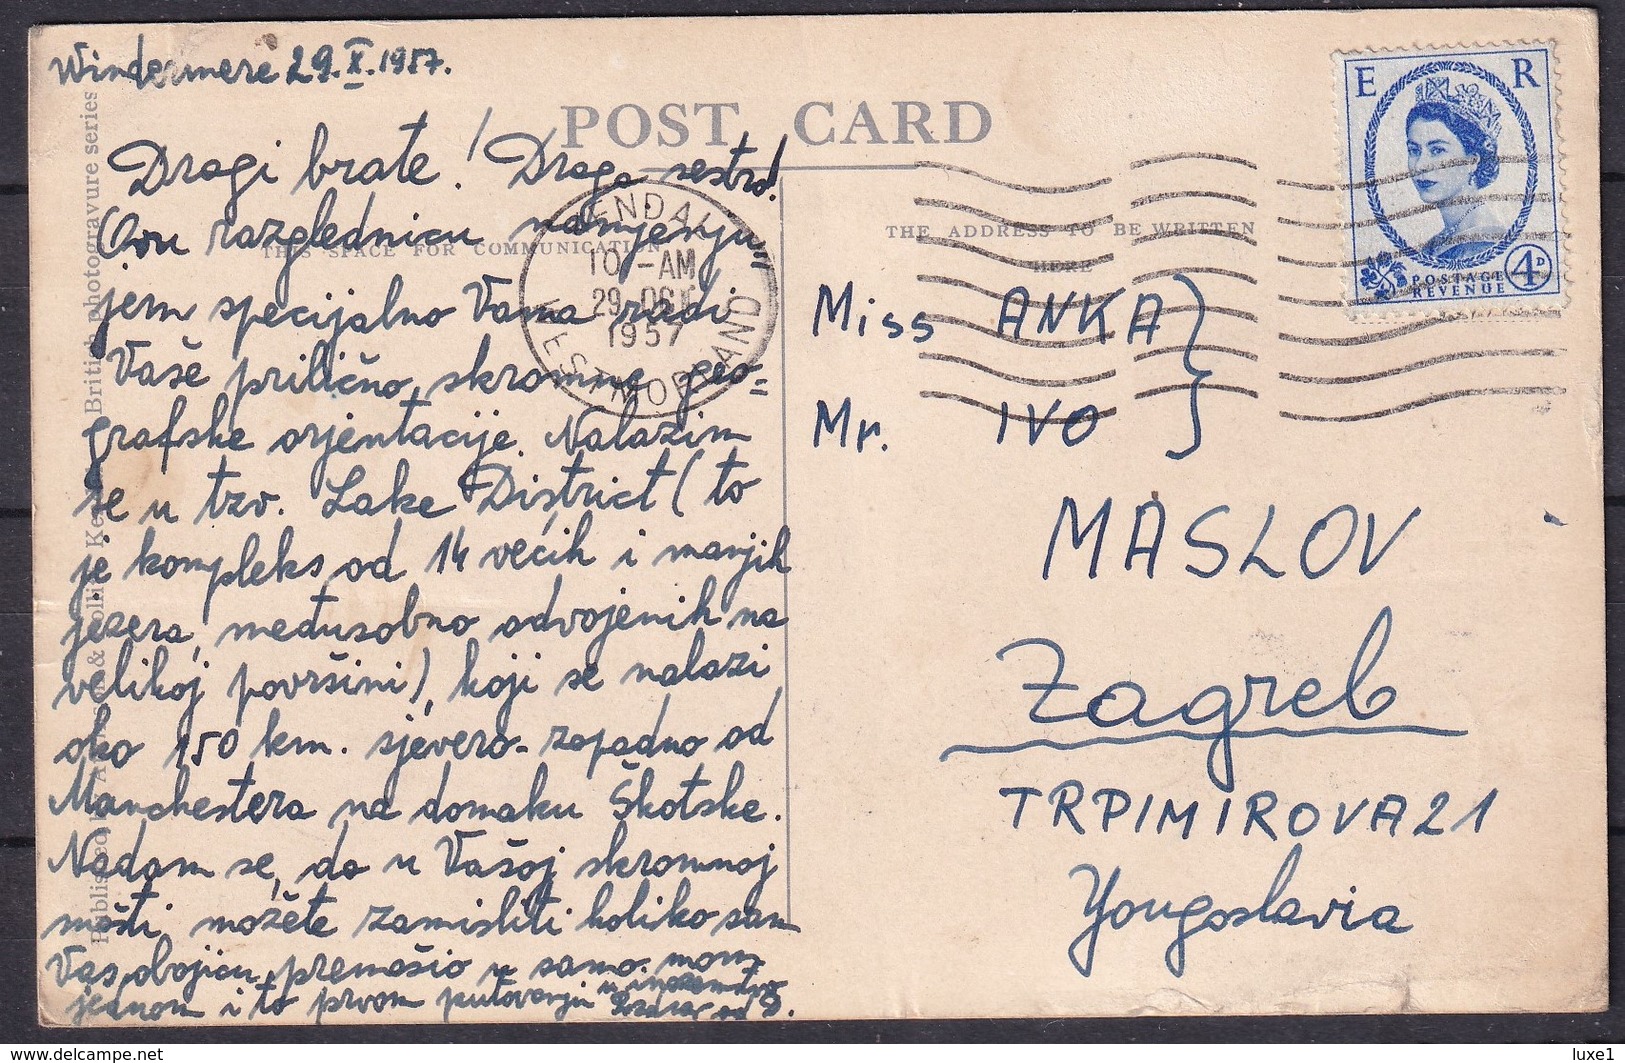 Windermere 29.X.1957.
POST CARD
Dragi brate! Draga sestro!
Ovu razglednicu namjenju„
jem specijalno Vama radi
Vaše prilično skromne geo=
grafske orjentacije. Nalazim
se u tzv. Lake District (to
je kompleks od 14 većih i manjih
jezera, međusobno odvojenih na
velikoj površini), koji se nalazi
oko 150 km. sjevero-zapadno od
Manchestera na domaku Škotske.
Nadam se, da u Vašoj skromnoj
mašti možete zamisliti koliko sam
Vas obojicu premašio u samo mom
jednom i to prvom putovanju u inozemstvo
Pozdrav od D.
THIS SPACE FOR COMMUNICATION
THE ADDRESS TO BE WRITTEN
HERE
KENDAL
10 - AM
29 OCT
1957
WESTMORLAND
E R
POSTAGE
REVENUE
4D
Miss ANKA
Mr. IVO
MASLOV
Zagreb
TRPIMIROVA 21
Yougoslavia
Published &
British photogravure series
delcampe.net
luxe1